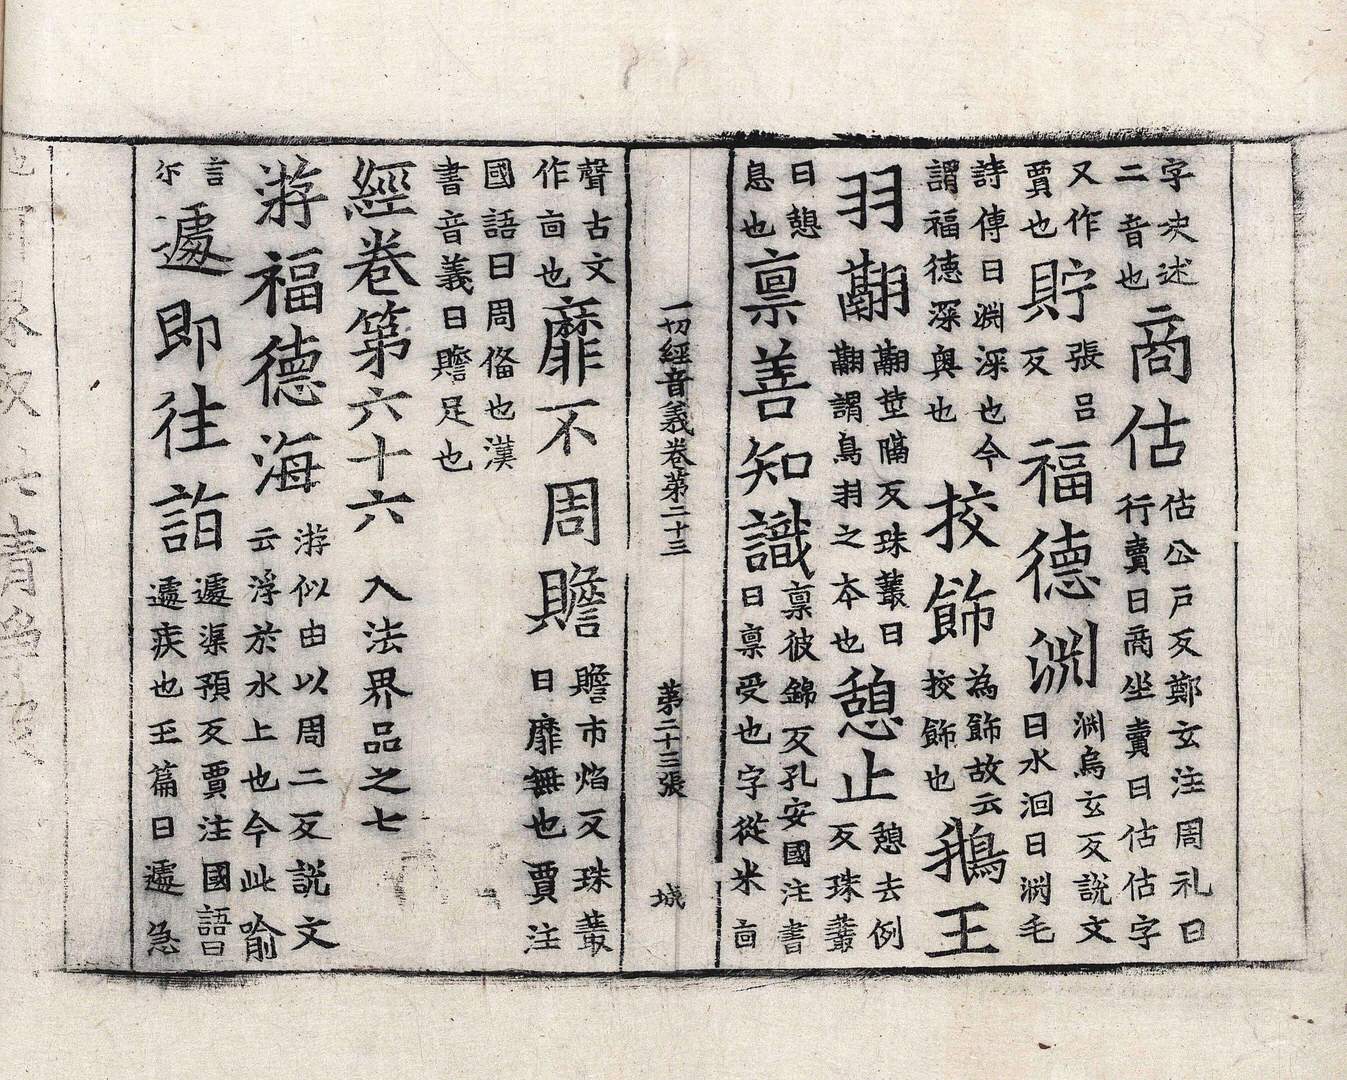 字决述二音也商估估公戶反鄭玄注周礼曰行賣曰商坐賣曰估估字
又作賈也貯張呂反福德渊渊烏玄反說文曰水洄曰渊毛
詩傳曰渊深也今謂福德深奥也挍飾為飾故云挍飾也鵝王
羽翮翮莖隔反珠叢曰翮謂鳥羽之夲也憩止憩去例反珠叢
曰憩息也禀善知識禀彼錦反孔安國注書曰禀受也字從米㐭
一切經音義卷苐二十三 苐二十三張 城
聲古文作㐭也靡不周贍贍市焰反珠叢曰靡無也賈注
國語曰周俻也漢書音義曰贍足也
經卷第六十六 入法界品之七
游福德海游似由以周二反說文云浮於水上也今此喻
言尓遽即往詣遽渠預反賈注國語曰遽疾也玉篇曰遽急